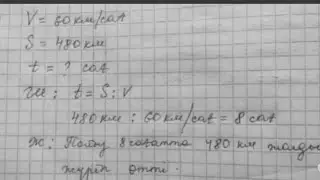 V = 60 км/сағ
S = 480 км
t = ? сағ
Ш: t = S : V
480 км : 60 км/сағ = 8 сағ
Ж: Поезд 8 сағатта 480 км жолды
жүріп өтті.